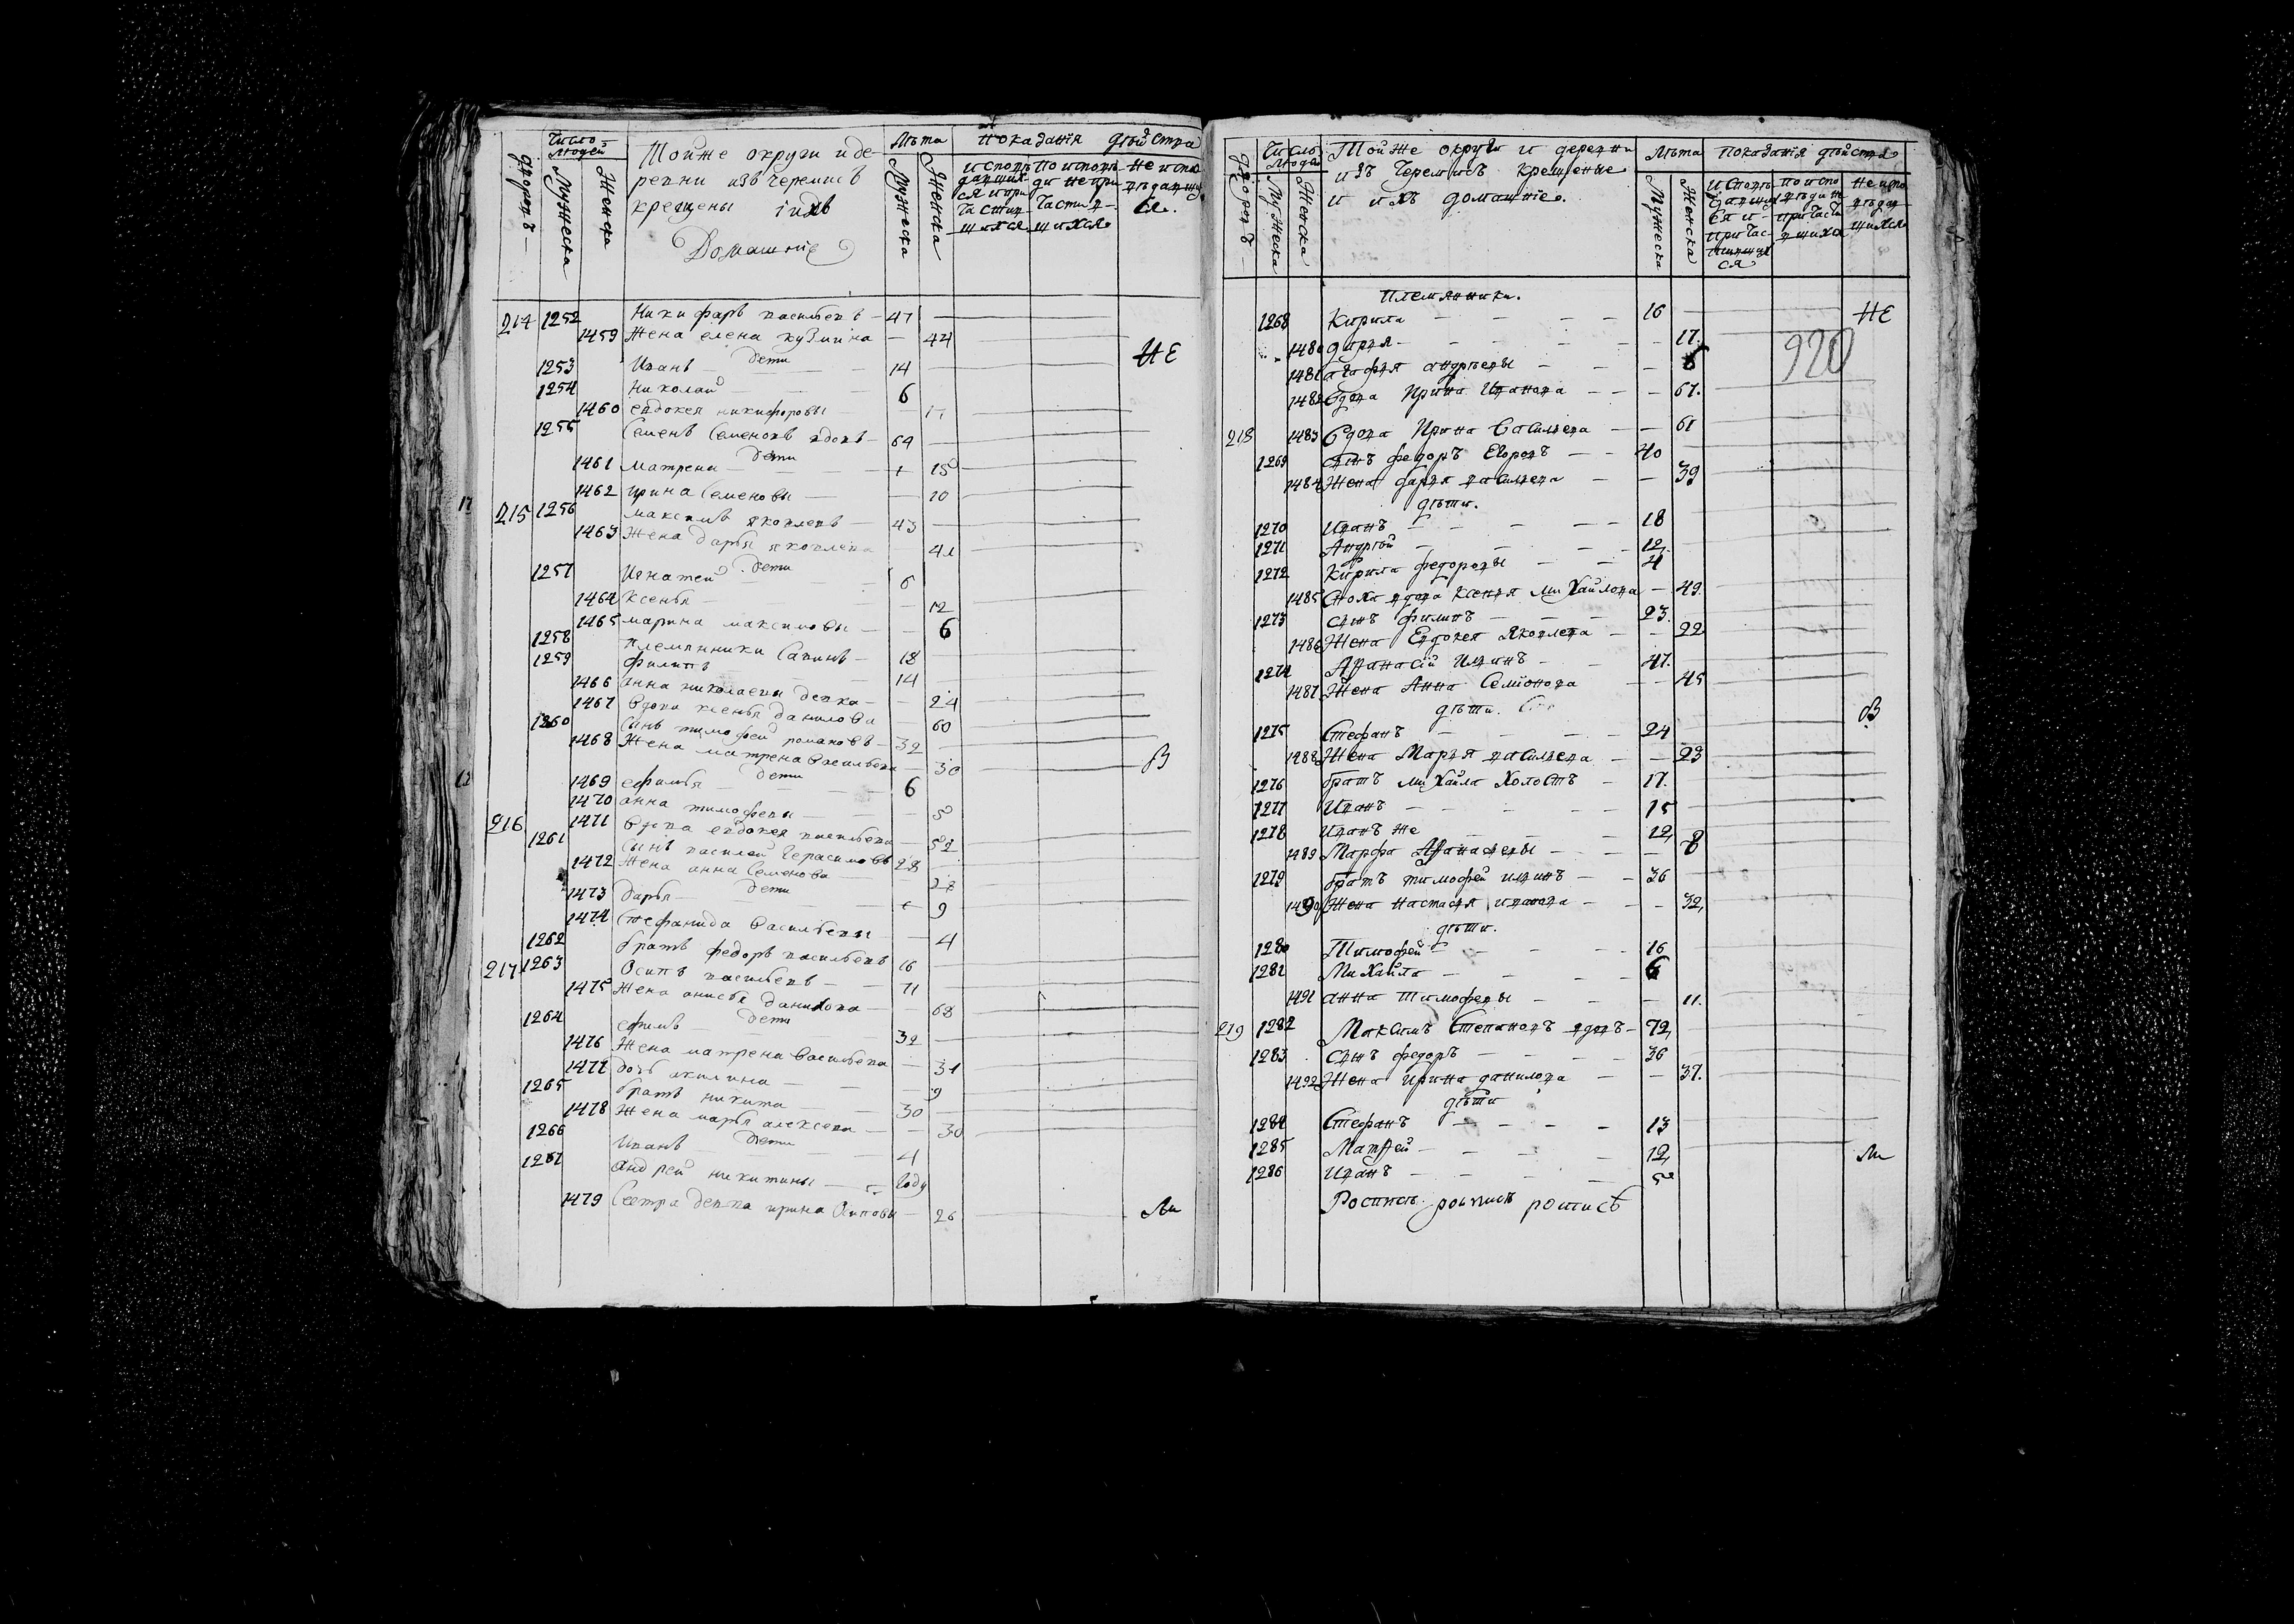 дворовъ
Число людей
Мужеска
Женска
Тойже округи и де-
ревни изъ черемисъ
крещены ихъ
Домашние
Лѣта
Мужеска
Женска
Показанія дѣйства
исповѣдавших-
ся и при-
частив-
шихся
по исповѣ-
ди непри-
частив-
шихся
не испо-
вѣдавши
ся.
214 1252 Никифаръ васильевъ 47
1459 Жена елена кузмина 44
дети НЕ
1253 Иванъ 14
1254 Николай 6
1460 евдокея никифоровы
1255 Семенъ Семеновъ вдовъ 64
дети
1461 Матрена 15
1462 ирина Семеновы 10
215 1256 максимъ яковлевъ 43
1463 Жена дарья яковлева 41
дети
1257 Игнатей 6
1464 Ксенья 12
1465 марина максимовы 6
1258 племянники Савинъ 18
1259 филипъ 14
1466 анна николаевы девка 24
1467 вдова ксенья данилова 60
1260 Сынъ тимофей романовъ 32
1468 Жена матрена васильева 30 В
дети
1469 ефимья 6
1470 анна тимофевы 5
216 1471 вдова евдокея васильева 52
1261 Сынъ василей Герасимовъ 28
1472 Жена анна Семенова 28
дети
1473 дарья 9
1474 Стефанида васильевы 4
1262 братъ федоръ васильевъ 16
217 1263 Осипъ васильевъ 71
1475 Жена анисья данилова 68
дети
1264 ефимъ 32
1476 Жена матрена васильева 31
1477 дочь акилина 9
1265 братъ никита 30
1478 Жена марья алексева 30
дети
1266 Иванъ 4
1267 андрей никитины году
1479 Сестра девка ирина Осипова 26 Ли
дворовъ
Число людей
Мужеска
Женска
Тойже округи и деревни
изъ Черемисъ крещеные
и ихъ домашніе.
Лѣта
Мужеска
Женска
Показанія дѣйства
исповѣ-
давших
ся и
причас-
тившиx
ся
по испо
вѣди не
причасти
вшихся
не испо
вѣдав-
шихся
племянники.
1268 Кирила 16 НЕ
1480 дарья 17.
1481 агафья андрѣевы 6 920
1482 вдова Ирина Иванова 67.
218 1483 вдова Ирина Васильева 61
1269 сынъ федоръ Егоровъ 40
1484 Жена дарья васильева 39
дѣти.
1270 Иванъ 18
1271 Андрѣй 12,
1272 Кирила федоровы 4
1485 Сноха вдова Ксенья михайлова 49.
1273 сынъ филипъ 23.
1486 Жена Евдокея Яковлева 22
1274 Афанасій Ивинъ 47.
1487 Жена Анна Семіонова 45
дѣти.
1275 Стефанъ 24 В
1488 Жена Марья васильева 23
1276 братъ михайла холостъ 17.
1277 Иванъ 15
1278 Иванъ же 12,
1489 Марфа Афанасевы 8
1279 братъ тимофей ивинъ 36
1490 Жена настасья иванова 32,
дѣти.
1280 Тимофей 16
1281 Михайла 6
1491 анна тимофевы 11.
219 1282 Максимъ Степановъ вдовъ 72,
1283 сынъ федоръ 36
1492 Жена ирина данилова 37.
дѣти
1284 Стефанъ 13
1285 Матфей 12, Ли
1286 Иванъ 5
Роспись роспись